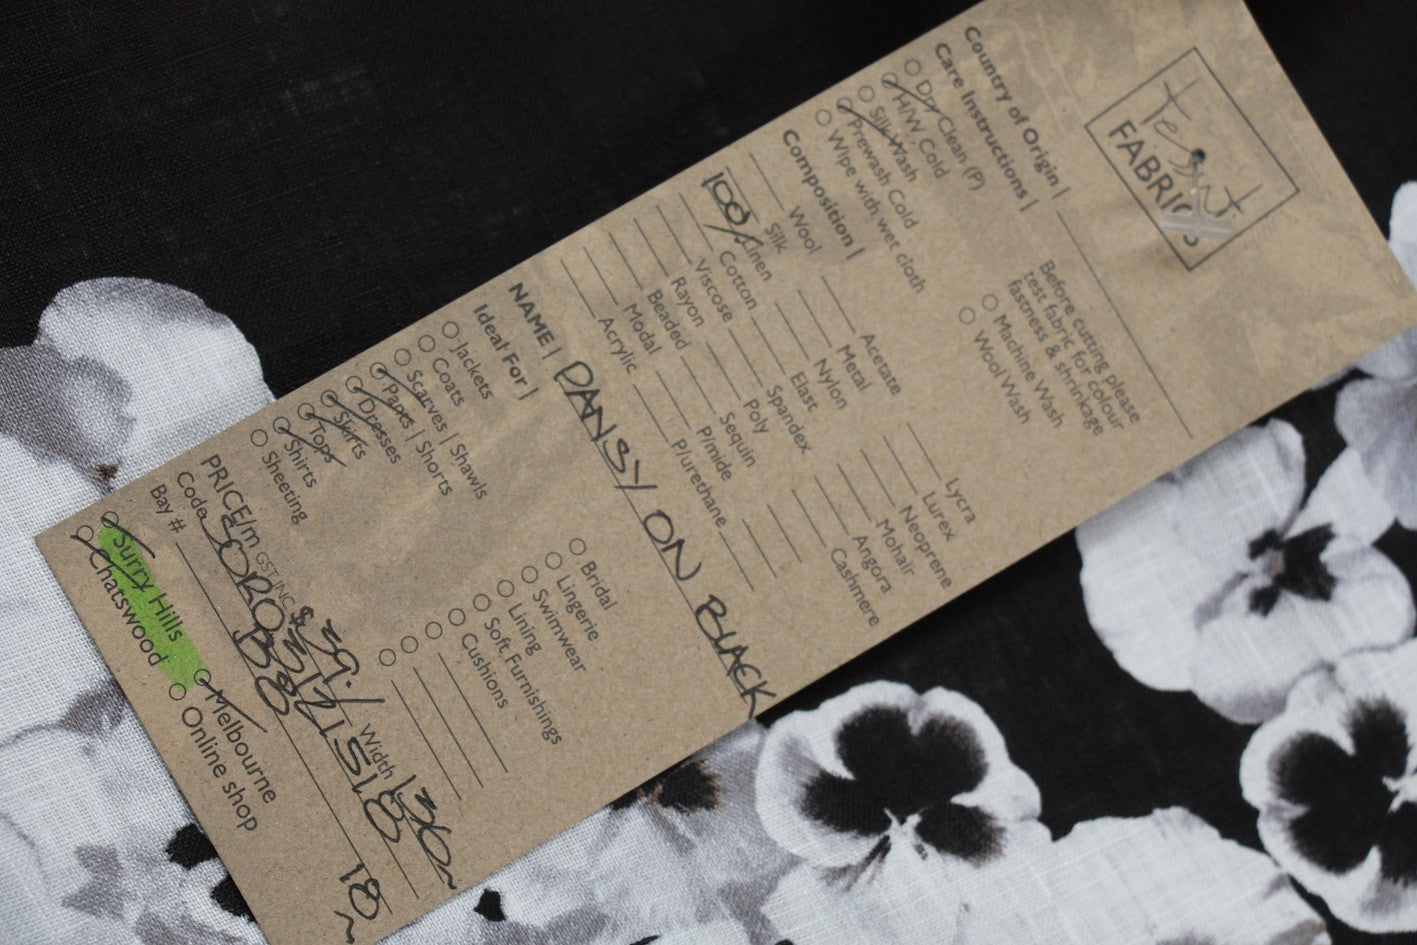 tessuti
FABRICS
Country of Origin |
Care Instructions |
Dry Clean (P)
H/W Cold
Silk Wash
Prewash Cold
Wipe with wet cloth
Before cutting please
test fabric for colour
fastness & shrinkage
Machine Wash
Wool Wash
Composition |
Wool
Silk
100% Linen
Cotton
Viscose
Rayon
Beaded
Modal
Acrylic
Acetate
Metal
Nylon
Elast
Spandex
Poly
Sequin
P/mide
P/urethane
Lycra
Lurex
Neoprene
Mohair
Angora
Cashmere
NAME | PANSY ON BLACK
Ideal For |
Jackets
Coats
Scarves | Shawls
Pants | Shorts
Dresses
Skirts
Tops
Shirts
Sheeting
Bridal
Lingerie
Swimwear
Lining
Soft Furnishings
Cushions
PRICE/m GST INC $39./ Width 136~
Code
Bay # B8 18~
Surry Hills
Melbourne
Chatswood
Online shop